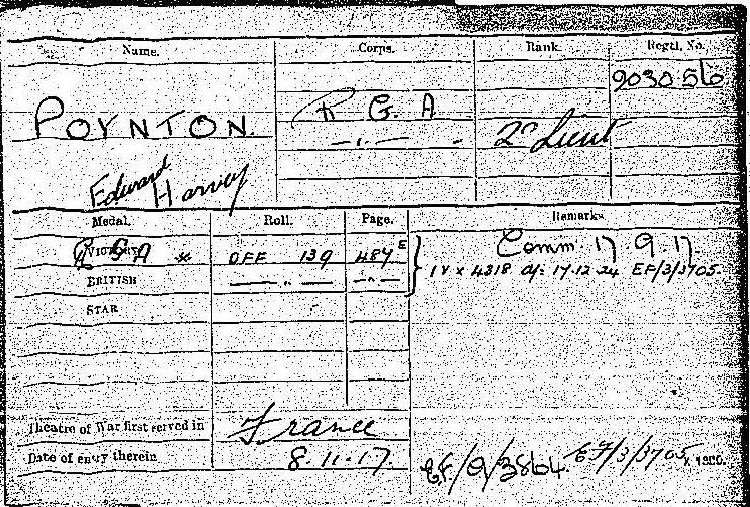 Name. Corps. Rank. Regtl. No.
903056
POYNTON. R G A 2nd Lieut
Edward Harvey — " —
Medal. Roll. Page. Remarks
VICTORY * OFF 139 487 E Comm. 17.9.17
BRITISH — " — — " — IV x 4318 d/: 17.12.24 EF/3/3705.
STAR
Theatre of War first served in France
Date of entry therein 8.11.17. EF/9/3864. EF/3/3705